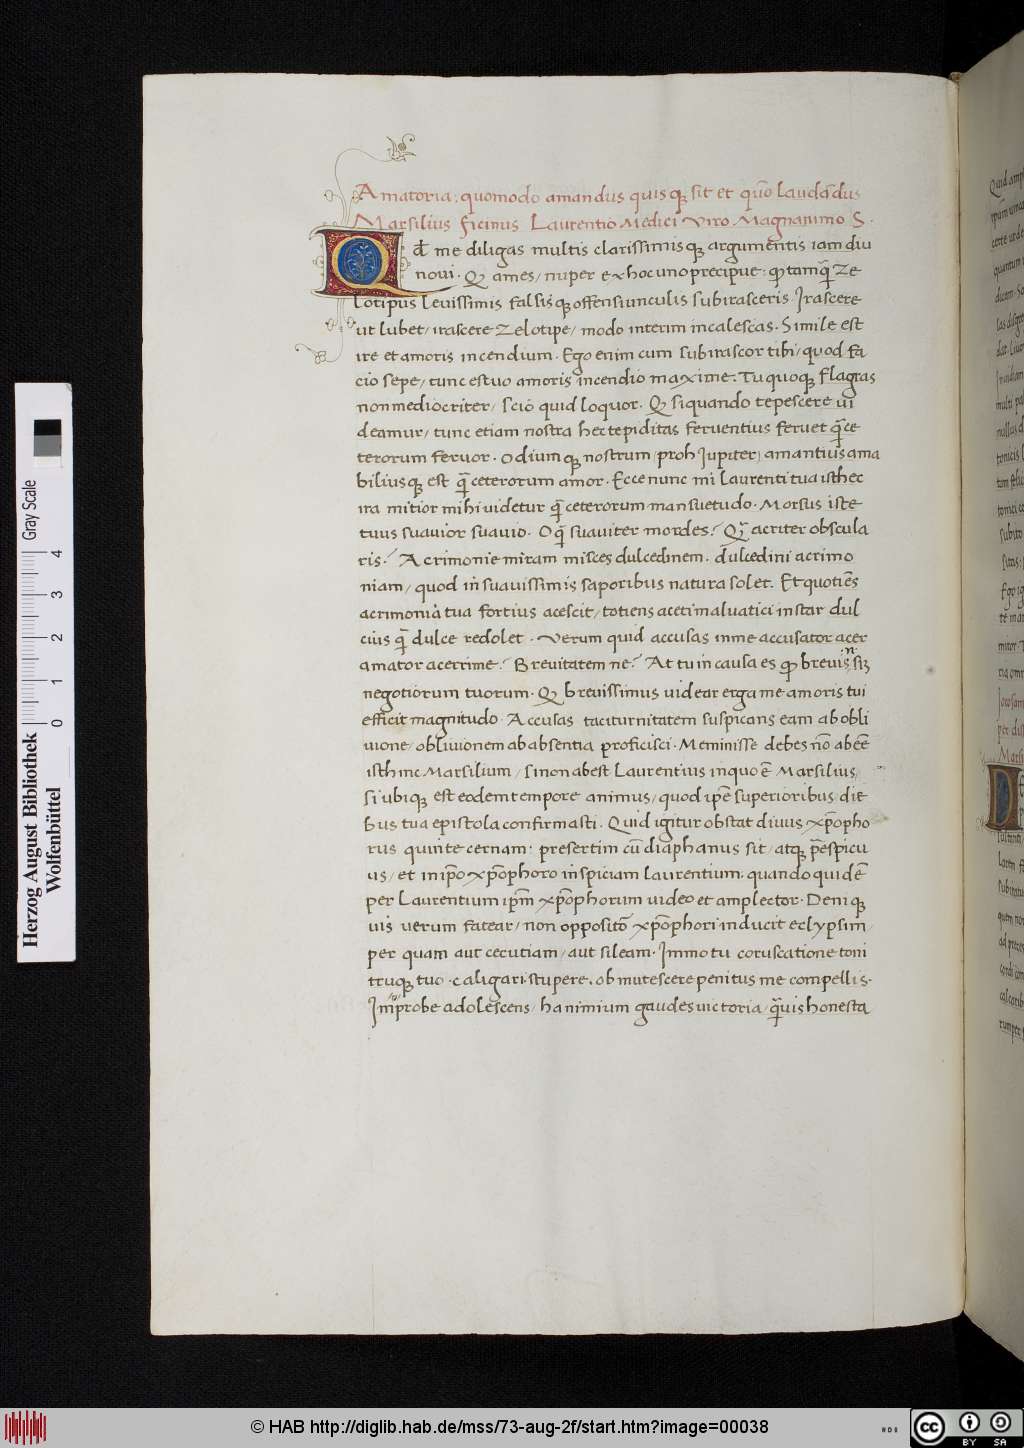 Amatoria: quomodo amandus quisq; sit et quō laudādus
Marsilius ficinus Laurentio Medici Viro Magnanimo S.
Qd me diligas multis clarissimisq; argumentis iam diu
novi. Q ames/ nuper ex hoc uno precipue: q tamq̄ Ze
lotipus levissimis falsisq; offensiunculis subirasceris. Irascere
ut lubet/ irascere Zelotipe/ modo interim incalescas. Simile est
ire et amoris incendium. Ego enim cum subirascor tibi/ quod fa
cio sepe/ tunc estuo amoris incendio maxime: Tu quoq; flagras
non mediocriter/ scio quid loquor. Q siquando tepescere vi
deamur/ tunc etiam nostra hec tepiditas ferventius fervet q̄ ce
terorum fervor. Odiumq; nostrum (proh Jupiter) amantius ama
biliusq; est q̄ ceterorum amor. Ecce nunc mi Laurenti tua isthec
ira mitior mihi videtur q̄ ceterorum mansuetudo. Morsus iste
tuus suavior suavio. O q̄ suaviter mordes? Q̄ acriter obscula
ris? Acrimonie miram misces dulcedinem. dulcedini acrimo
niam/ quod in suavissimis saporibus natura solet. Et quotiēs
acrimonia tua fortius acescit/ totiens aceti malvatici instar dul
cius q̄ dulce redolet. Verum quid accusas in me accusator acer
amator acerrime? Brevitatem ne? At tu in causa es q brevis sū
negotiorum tuorum. Q brevissimus videar erga me amoris tui
efficit magnitudo. Accusas taciturnitatem suspicans eam ab obli
vione/ oblivionem ab absentia proficisci. Meminisse debes nō abēē
isthinc Marsilium/ si non abest Laurentius in quo ē Marsilius/
si ubiq; est eodem tempore animus/ quod ipse superioribus die
bus tua epistola confirmasti. Quid igitur obstat divus xp̄opho
rus quin te cernam: presertim cū diaphanus sit/ atq; p̄espicu
us/ et in ip̄o xp̄ophoro inspiciam laurentium: quando quidē
per Laurentium ip̄m xp̄ophorum video et amplector. Deniq;
vis verum fatear/ non oppositō xp̄ophori inducit eclypsim/
per quam aut cecutiam/ aut sileam. Immo tu coruscatione toni
truq; tuo caligari stupere, obmutescere penitus me compellis.
Improbe adolescens/ ha nimium gaudes victoria/ q̄vis honesta
Gray Scale
0 1 2 3 4
Herzog August Bibliothek
Wolfenbüttel
© HAB http://diglib.hab.de/mss/73-aug-2f/start.htm?image=00038
cc BY SA